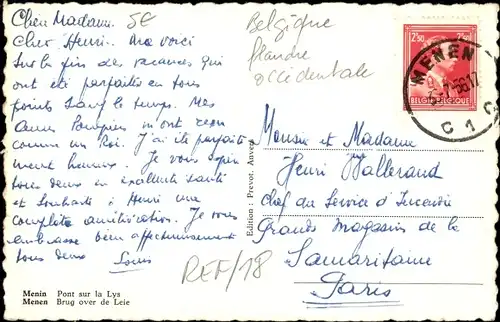 Chère Madame 5E
Cher Henri. Me voici
sur la fin des vacances qui
ont été parfaites en tous
points sauf le temps. Mes
amis Pompiers m'ont reçu
comme un Roi. J'ai été parfaite
ment heureux. Je vous espère
tous deux en excellente santé
et souhaite à Henri une
complète amélioration. Je vous
embrasse bien affectueusement
tous deux
Louis
REF/18
Menin Pont sur la Lys
Menen Brug over de Leie
Edition: Prevot, Anvers
Belgique
flandre
occidentale
2F50 2F50
BELGIE-BELGIQUE
MENEN
C 1 C
Monsieur et Madame
Henri Ballerand
Chef du Service d'Incendie
Grands Magasins de la
Samaritaine
Paris